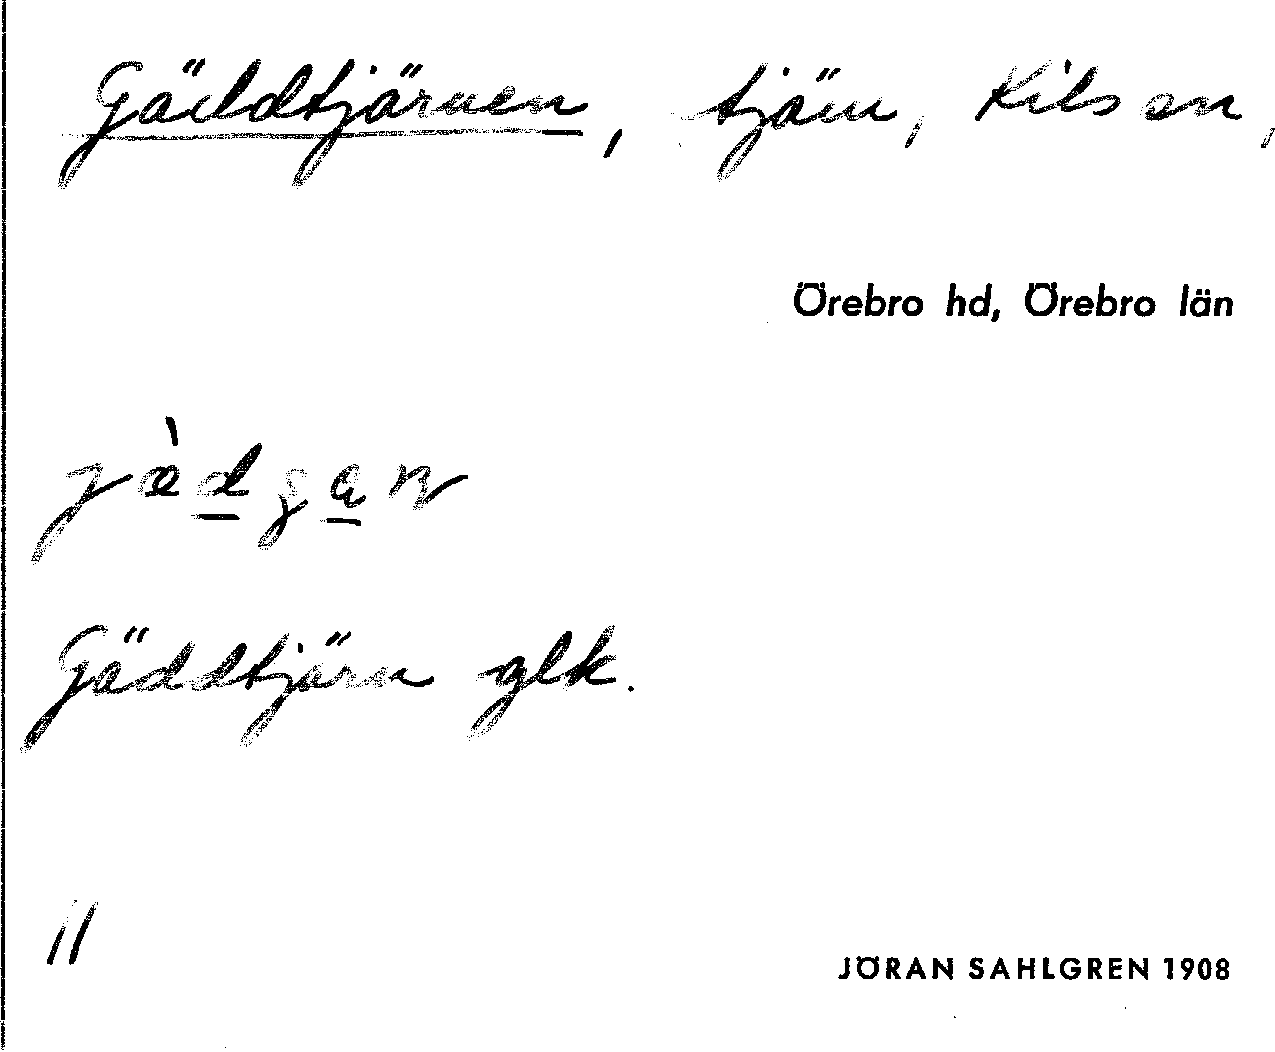 Gäddtjärnen, tjärn, Kils sn,
Örebro hd, Örebro län
Gäddtjärn glk.
11
JÖRAN SAHLGREN 1908